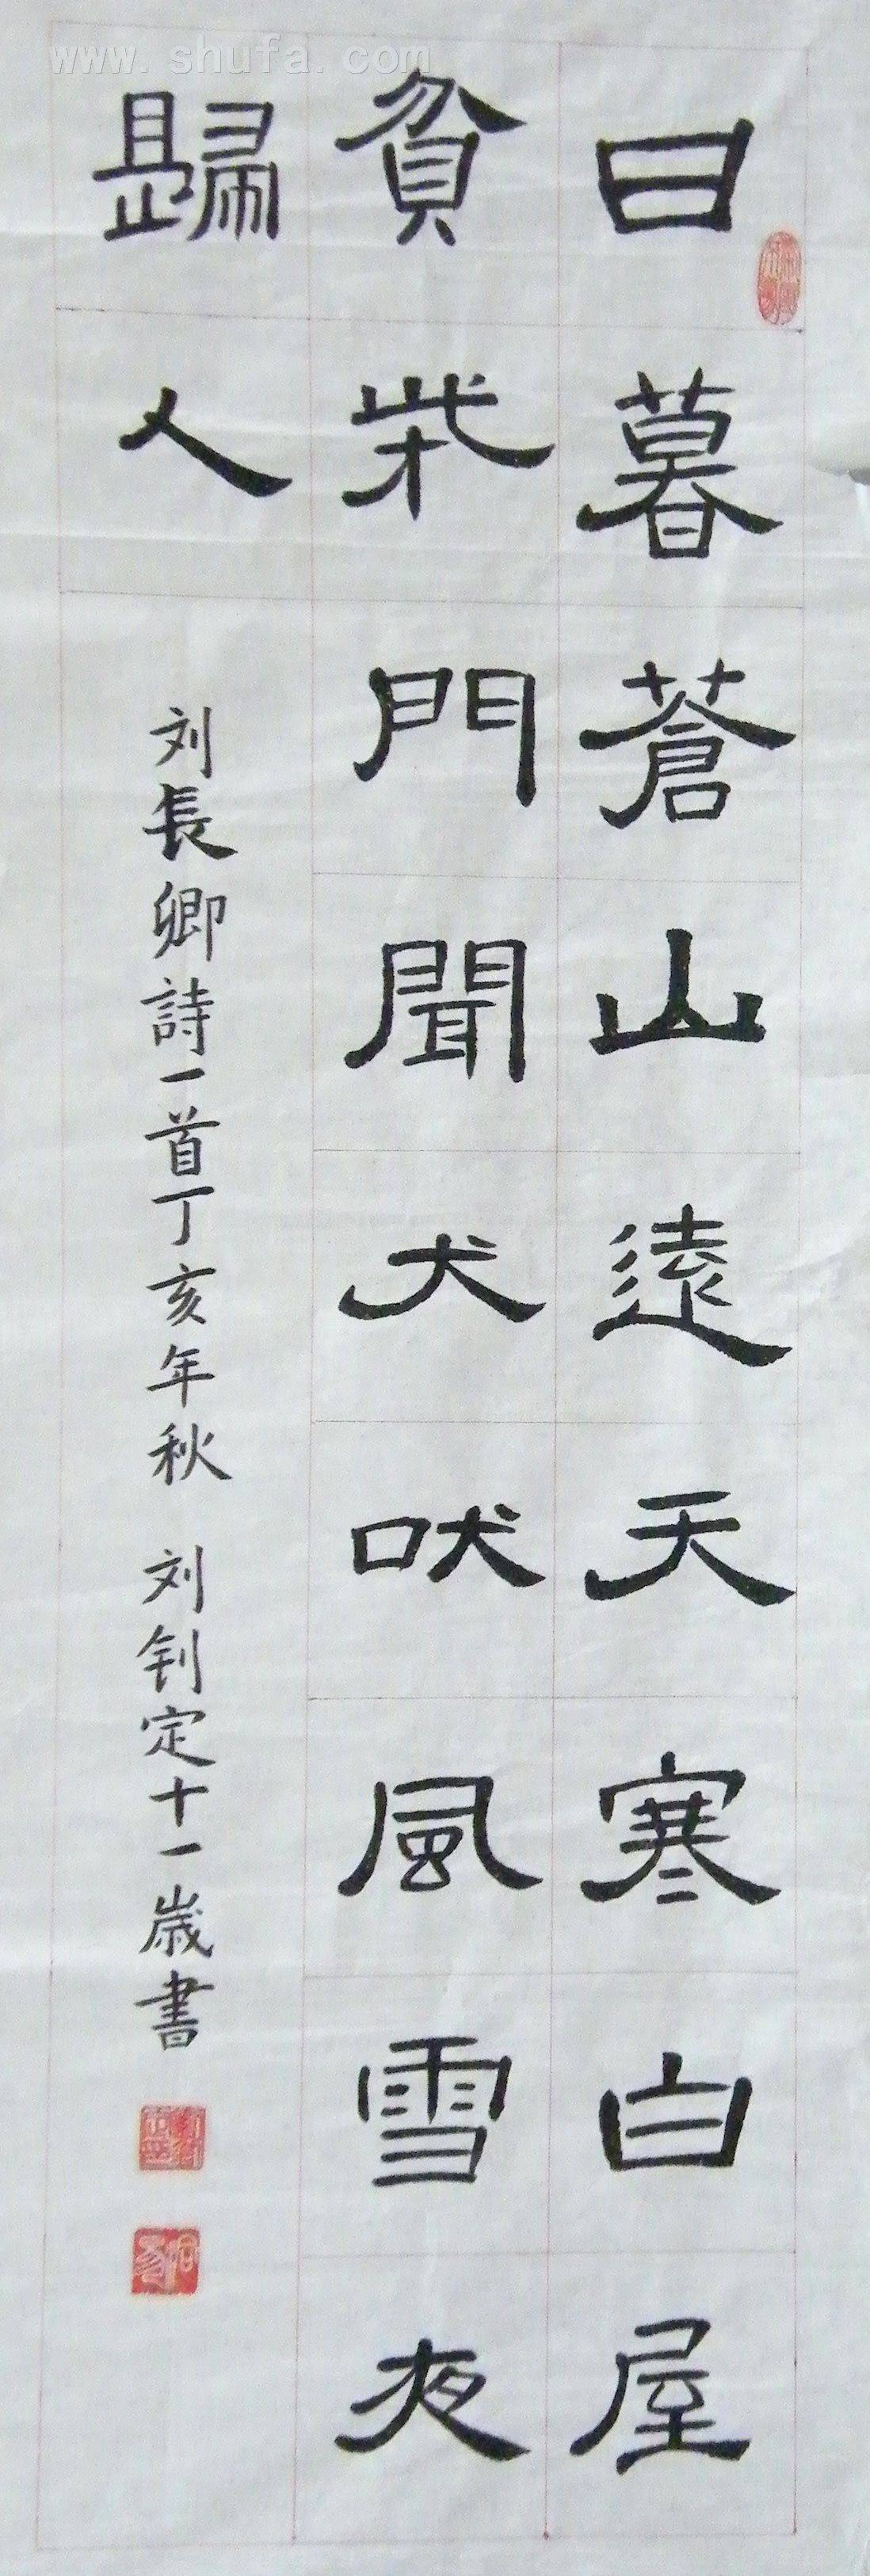 日暮蒼山遠天寒白屋
貧柴門聞犬吠風雪夜
歸人
刘長卿詩一首丁亥年秋 刘钊定十一歲書
www.shufa.com